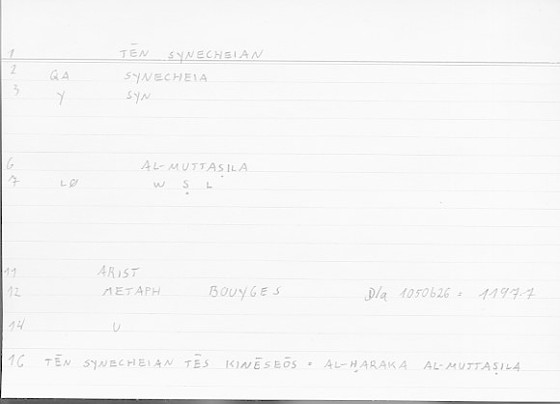 1 TĒN SYNECHEIAN
2 QA SYNECHEIA
3 Y SYN
6 AL-MUTTAṢILA
7 LØ W Ṣ L
11 ARIST
12 METAPH BOUYGES 1050b26 = 1197.7
14 U
16 TĒN SYNECHEIAN TĒS KINĒSEŌS = AL-ḤARAKA AL-MUTTAṢILA